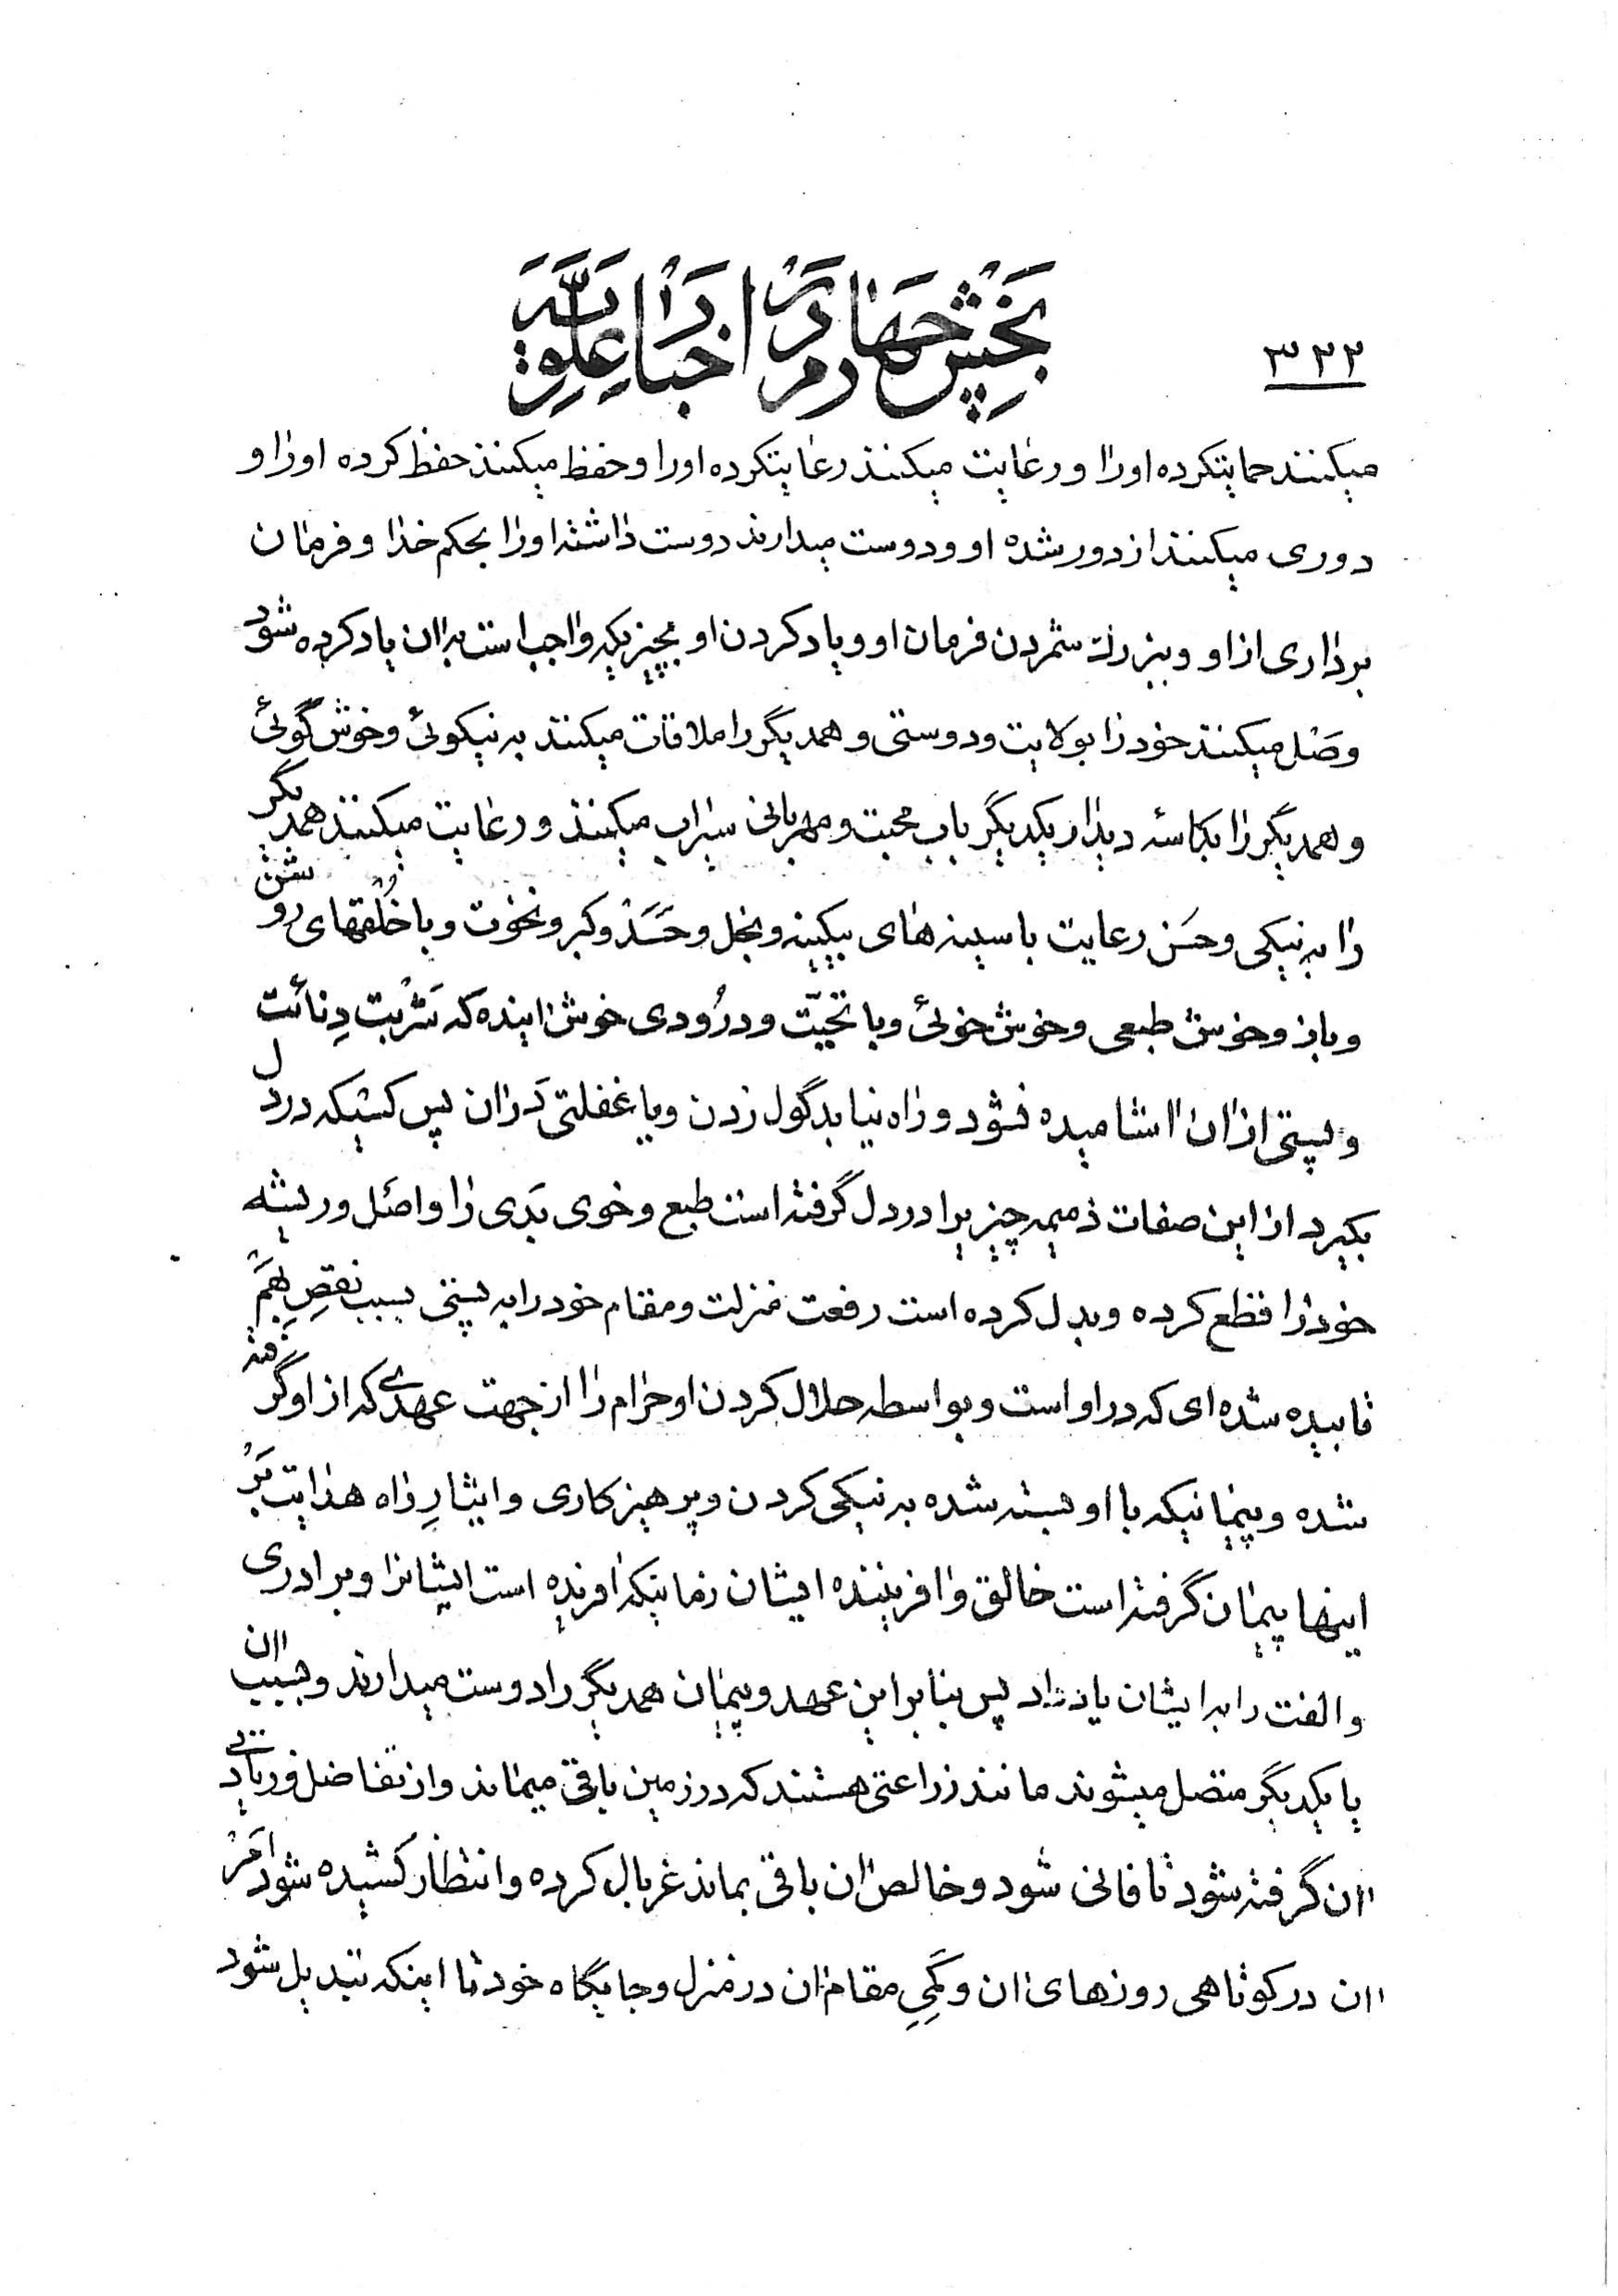 ۳۲۲
بخش چهارم در اخبار علویه
میکنند حمایتکرده اورا و رعایت میکنند رعایتکرده اورا و حفظ میکنند حفظ کرده اورا و
دوری میکنند از دور شده او و دوست میدارند دوست داشته اورا بحکم خدا و فرمان
برداری از او و بزرك شمردن فرمان او و یاد کردن او بچیزیکه واجب است بر ان یاد کرده شود
وصل میکنند خود را بولایت و دوستی و همدیگر را ملاقات میکنند به نیکوئی و خوش گوئی
و همدیگر را بکاسهٔ دیدار یکدیگر باب محبت و مهربانی سیراب میکنند و رعایت میکنند همدیگر
را به نیکی و حسن رعایت با سینه های بیکینه و بخل و حَسَد و کبر و نخوت و با خُلقهای روشن
و باز و خوش طبعی و خوش خوئی و با تحیّت و درُودی خوش اینده که شَربت دِنائت
و پستی از ان اشامیده نشود و راه نیابد گول زدن و یا غفلتی دَر ان پس کسیکه در دل
بگیرد از این صفات ذمیمه چیزیرا در دل گرفته است طبع و خوی بَدی را و اصل و ریشه
خود را قطع کرده و بدل کرده است رفعت منزلت و مقام خود را به پستی بسبب نقصِ بهَم
تابیده شده ای که در او است و بواسطه حلال کردن او حرام را از جهت عهدی که از او گرفته
شده و پیمانیکه با او بسته شده به نیکی کردن و پرهیزکاری و ایثارِ راه هدایت بَر
اینها پیمان گرفته است خالق و افریننده ایشان زمانیکه افریده است ایشانرا و برادری
و الفت را به ایشان یاد داد پس بنا بر این عهد و پیمان همدیگر را دوست میدارند و بسبب ان
با یکدیگر متصل میشوند مانند زراعتی هستند که در زمین باقی میماند و از تفاضل و زیادتی
ان گرفته شود تا فانی شود و خالص ان باقی بماند غربال کرده و انتظار کشیده شود امر
ان در کوتاهی روزهای ان و کمیِ مقام ان در منزل و جایگاه خود تا اینکه تبدیل شود